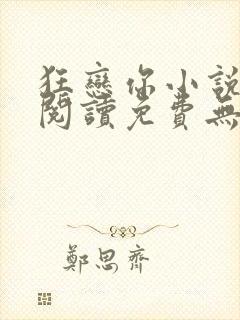 狂戀你小說
閱讀免費無
鄭思齊